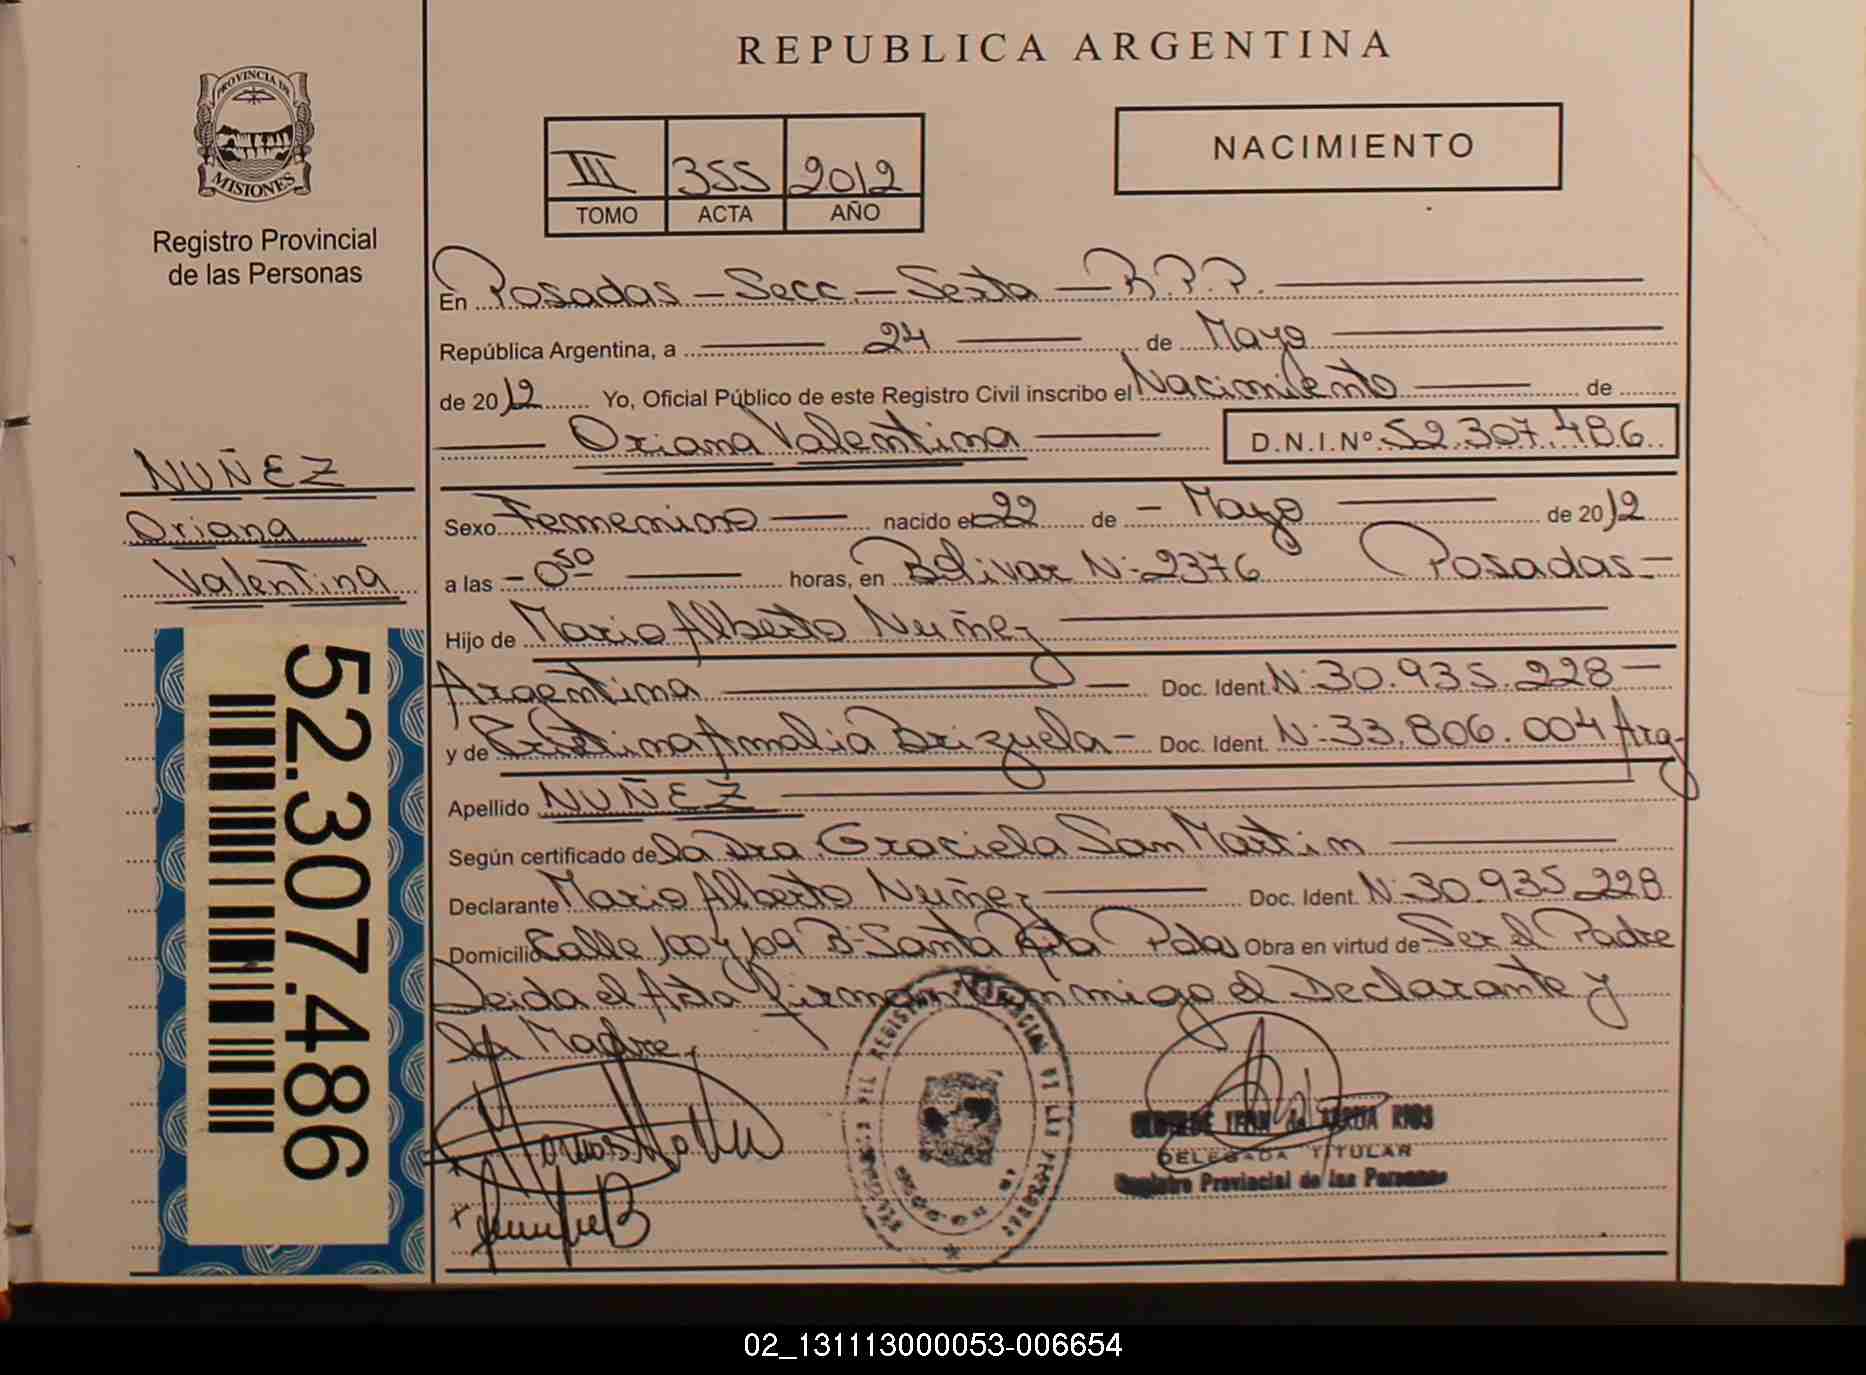 PROVINCIA DE
MISIONES
Registro Provincial
de las Personas
NUÑEZ
Oriana
Valentina
52.307.486
REPUBLICA ARGENTINA
III 355 2012
TOMO ACTA AÑO
NACIMIENTO
En Posadas - Secc. - Sexta - R.P.P.
República Argentina, a 24 de Mayo
de 2012 Yo, Oficial Público de este Registro Civil inscribo el Nacimiento de
Oriana Valentina D.N.I.Nº 52.307.486
Sexo Femenino nacido el 22 de - Mayo de 2012
a las - 0 50 horas, en Bolivar N: 2376 Posadas -
Hijo de Mario Alberto Nuñez
Argentina - Doc. Ident. N: 30.935.228 -
y de Cristina Amalia Brizuela - Doc. Ident. N: 33.806.004 Arg-
Apellido NUÑEZ
Según certificado de la Dra. Graciela San Martin
Declarante Mario Alberto Nuñez Doc. Ident. N: 30.935.228
Domicilio Calle 100 y 109 B: Santa Rita Pdas Obra en virtud de Ser el Padre
Leida el Acta firman conmigo el Declarante y
la Madre.
DELEGADA TITULAR
Registro Provincial de las Personas
02_131113000053-006654